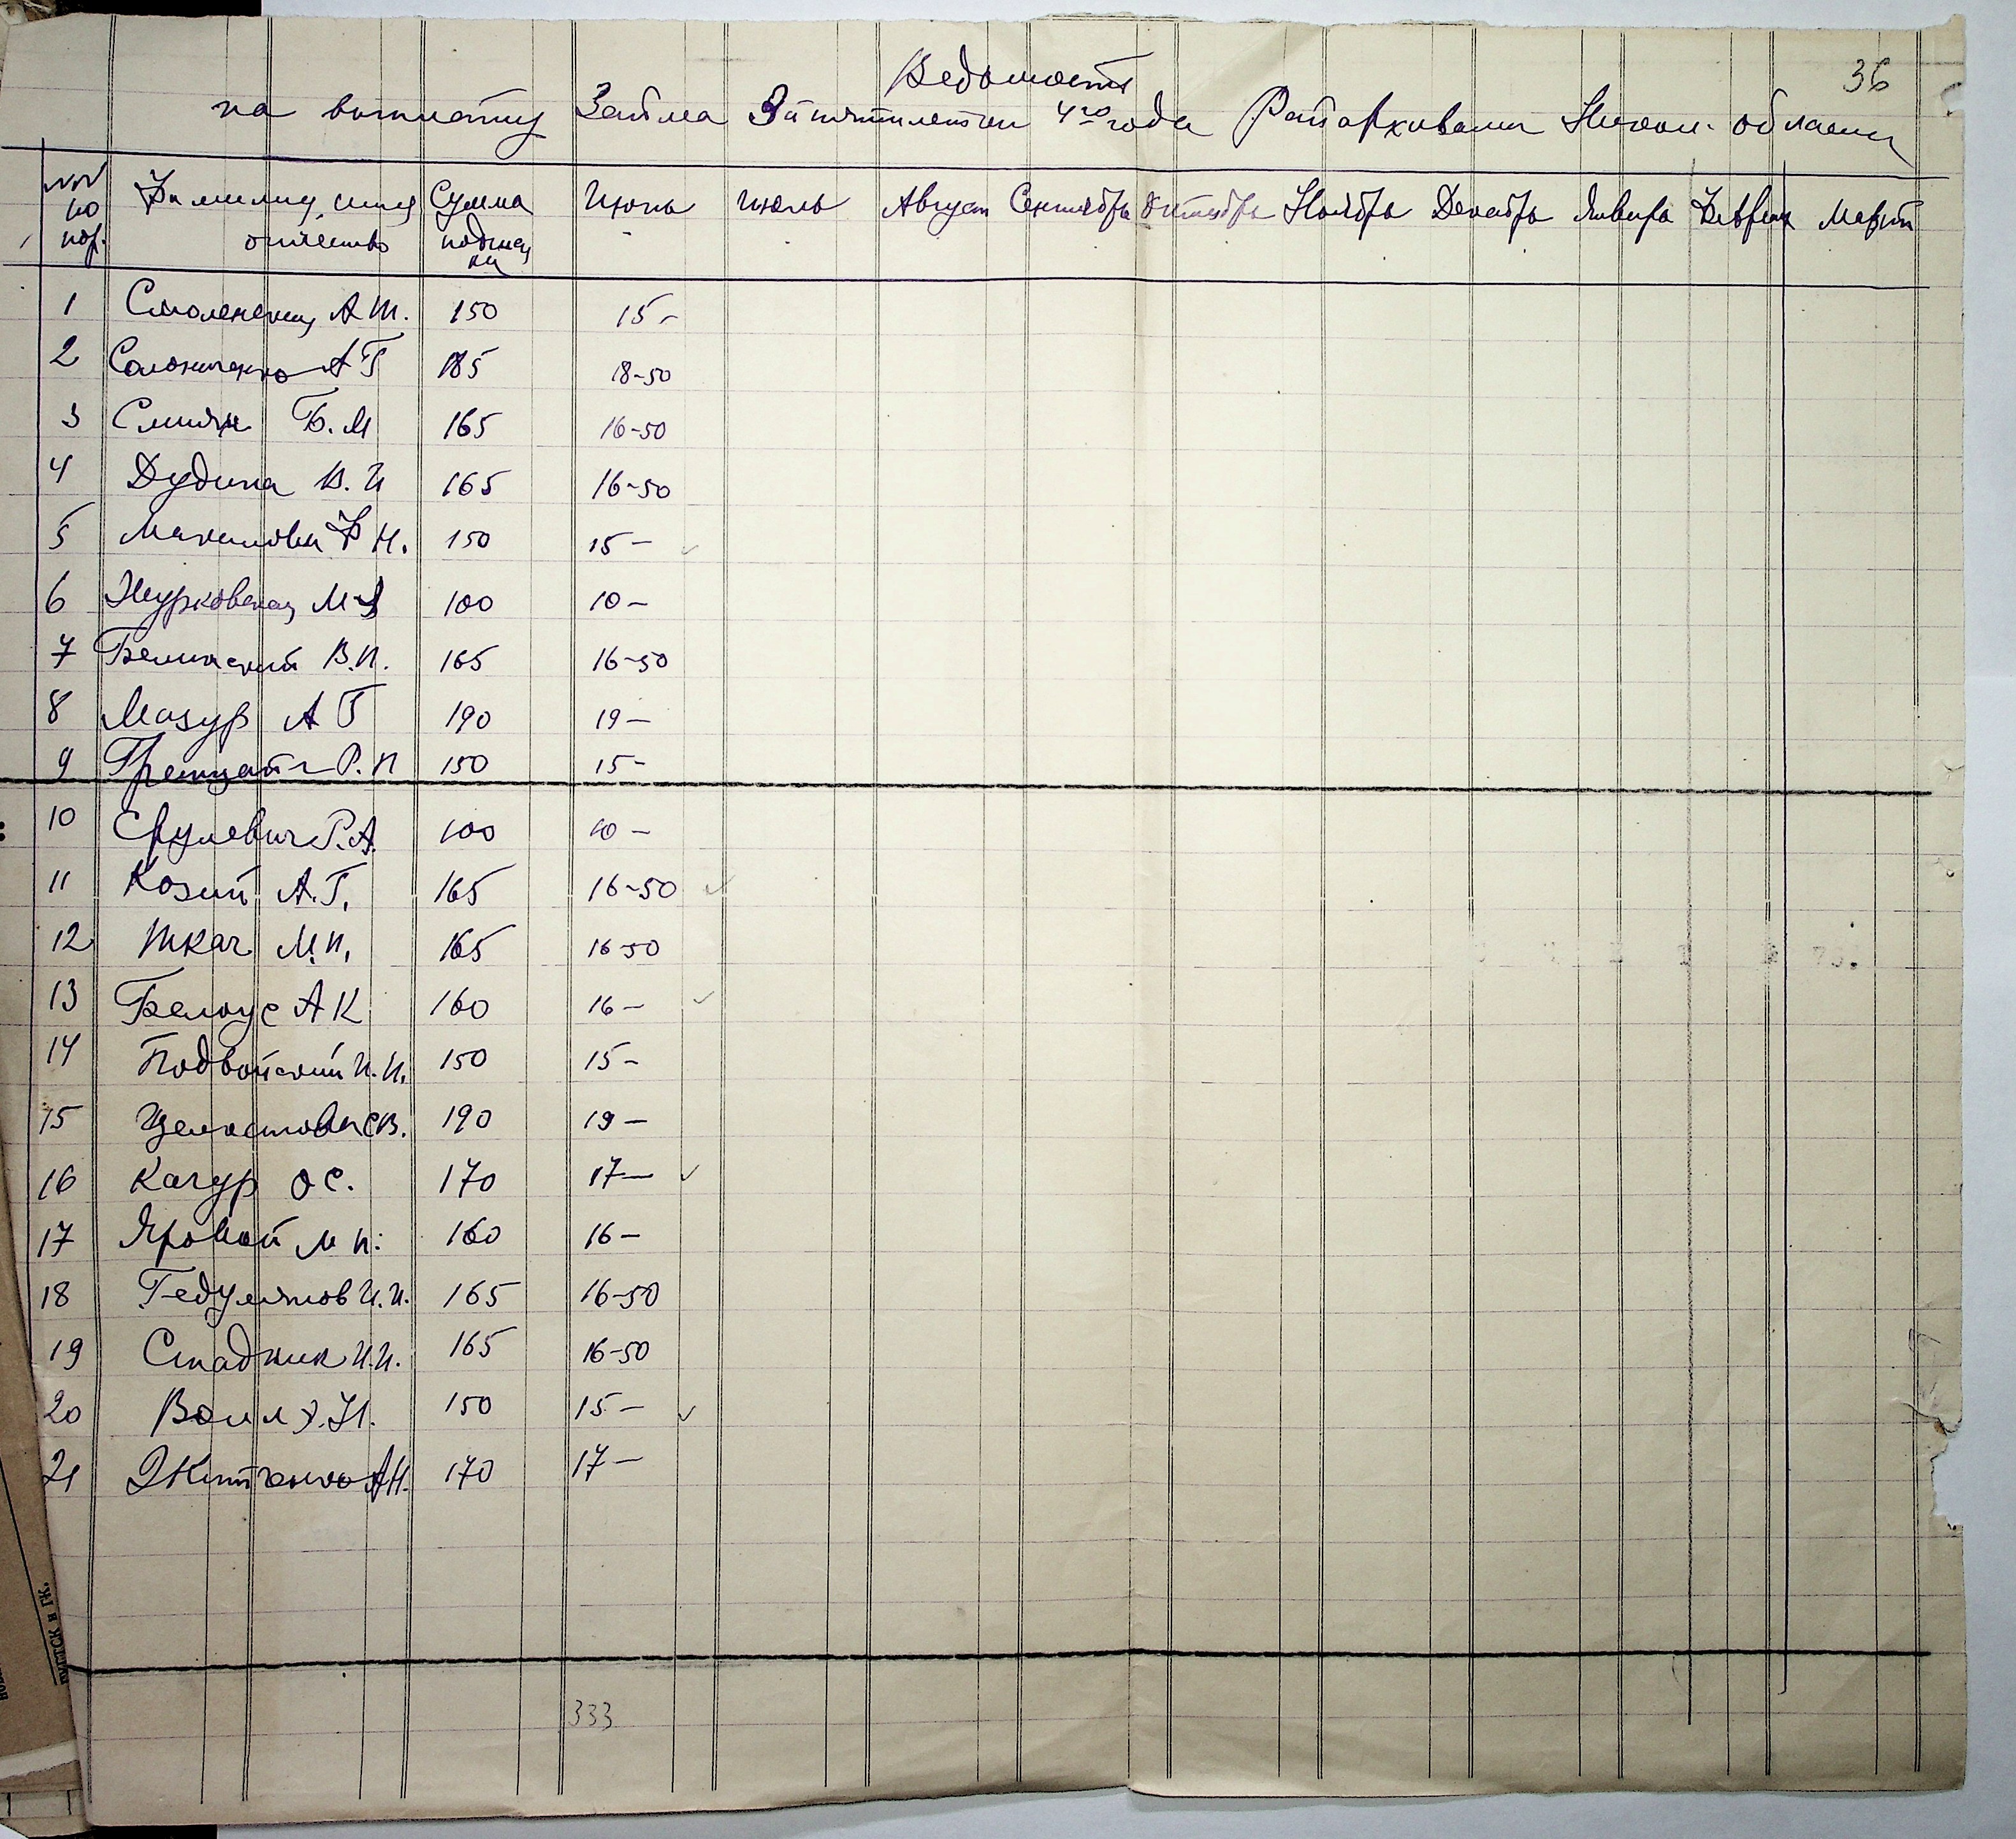 36
Ведомость
на выплату Займа 3й пятилетки 4го года Райархивами Никол. области
№№ по пор. Фамилия, имя отчество Сумма подписки Июнь Июль Август Сентябрь Октябрь Ноябрь Декабрь Январь Февраль Март
1 Смоленская А Ш. 150 15-
2 А Г 185 18-50
3 Б. М 165 16-50
4 Дудина В. И 165 16-50
5 Ф Н. 150 15-
6 М 100 10-
7 В.И. 165 16-50
8 Мазур А Г 190 19-
9 Р. П 150 15-
10 Ерулевич Р.А. 100 10-
11 Козий А.Г. 165 16-50
12 Ткач М.П. 165 16 50
13 Белоус А К 160 16-
14 Подвойский И. И. 150 15-
15 С В. 190 19-
16 Качур О С. 170 17-
17 Яровой М П. 160 16-
18 И. И. 165 16-50
19 Стадник И.И. 165 16-50
20 150 15-
21 А Н. 170 17-
333
ПУТСК и ГЖ.